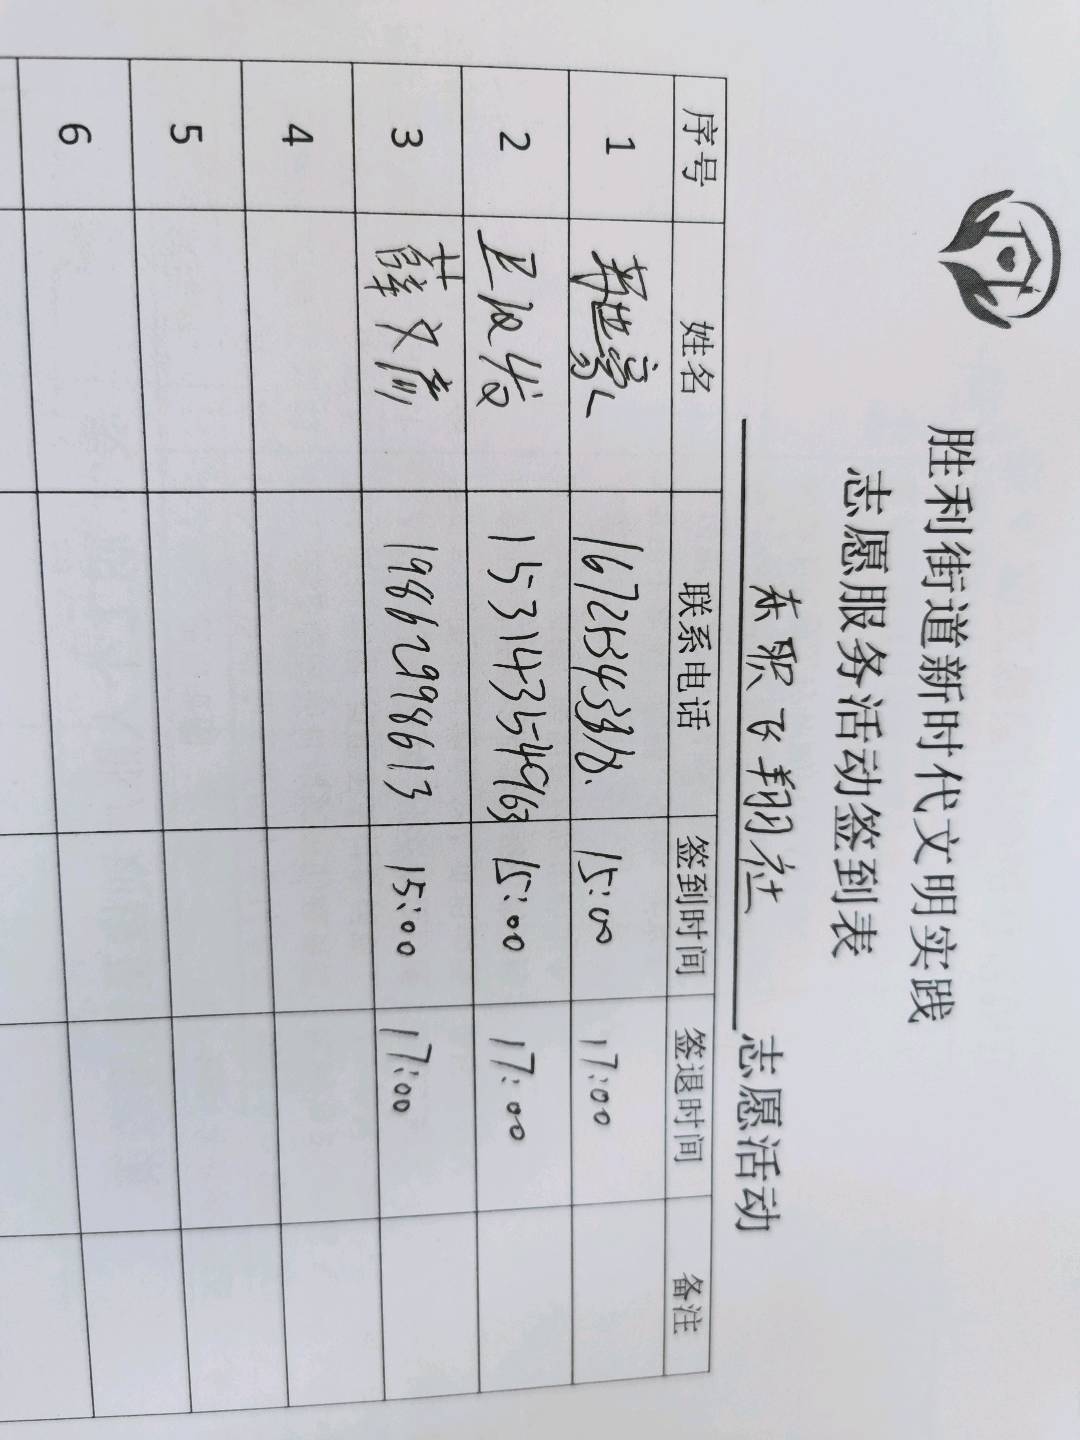 胜利街道新时代文明实践
志愿服务活动签到表
东职飞翔社 志愿活动
序号 姓名 联系电话 签到时间 签退时间 备注
1 15:00 17:00
2 15314354963 15:00 17:00
3 薛文彦 19862998613 15:00 17:00
4
5
6